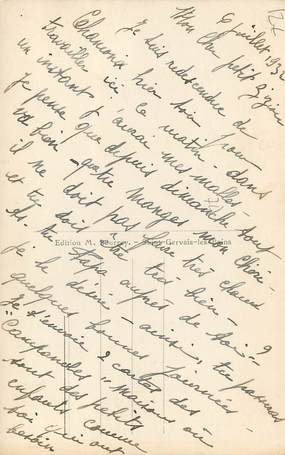 6 juillet 932
Mon cher petit
Je suis redescendue de
Chamonix hier soir pour
travailler ici ce matin - dans
un instant j'aurai mes malles -
Je pense que depuis dimanche tout
va bien - quatre manges mon chéri
il ne doit pas faire très chaud
et tu dois être très bien -
As-tu Papa auprès de toi - ?
Je le désire - ainsi, tu passeras
quelques bonnes journées -
Je t'envoie 2 cartes des
"Campanules", maison où
sont des petits
enfants comme
toi qui ont
besoin
Edition M. - Saint-Gervais-les-Bains